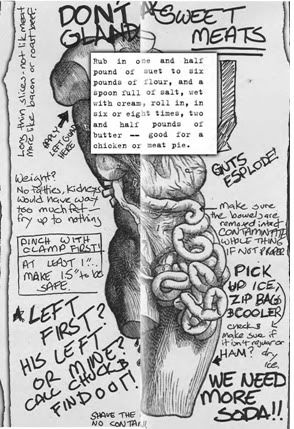 DON'T
GLAND
SWEET
MEATS
Long thin slices - not like meat
more like bacon or roast beef.
Rub in one and half
pound of suet to six
pounds of flour, and a
spoon full of salt, wet
with cream, roll in, in
six or eight times, two
and half pounds of
butter -- good for a
chicken or meat pie.
APPLY
LEFT GLAND
HERE
GUTS
EXPLODE!
Weight?
No fatties, kidneys
would have way
too much fat
fry up to nothing
PINCH WITH
CLAMP FIRST!
AT LEAST 1"..
MAKE 1.5" to be
SAFE.
make sure
the bowel are
removed intact
CONTAMINATE
WHOLE THING
IF NOT PROPER
PICK
UP ICE,
ZIP BAG
3 COOLER
check B
make sure if
it isn't regular or
HAM? dry
ice.
LEFT
FIRST?
HIS LEFT
OR MINE?
CALL CHUCK B
FIND OUT!
WE NEED
MORE
SODA!!
SHAVE THE
NO CONTAM